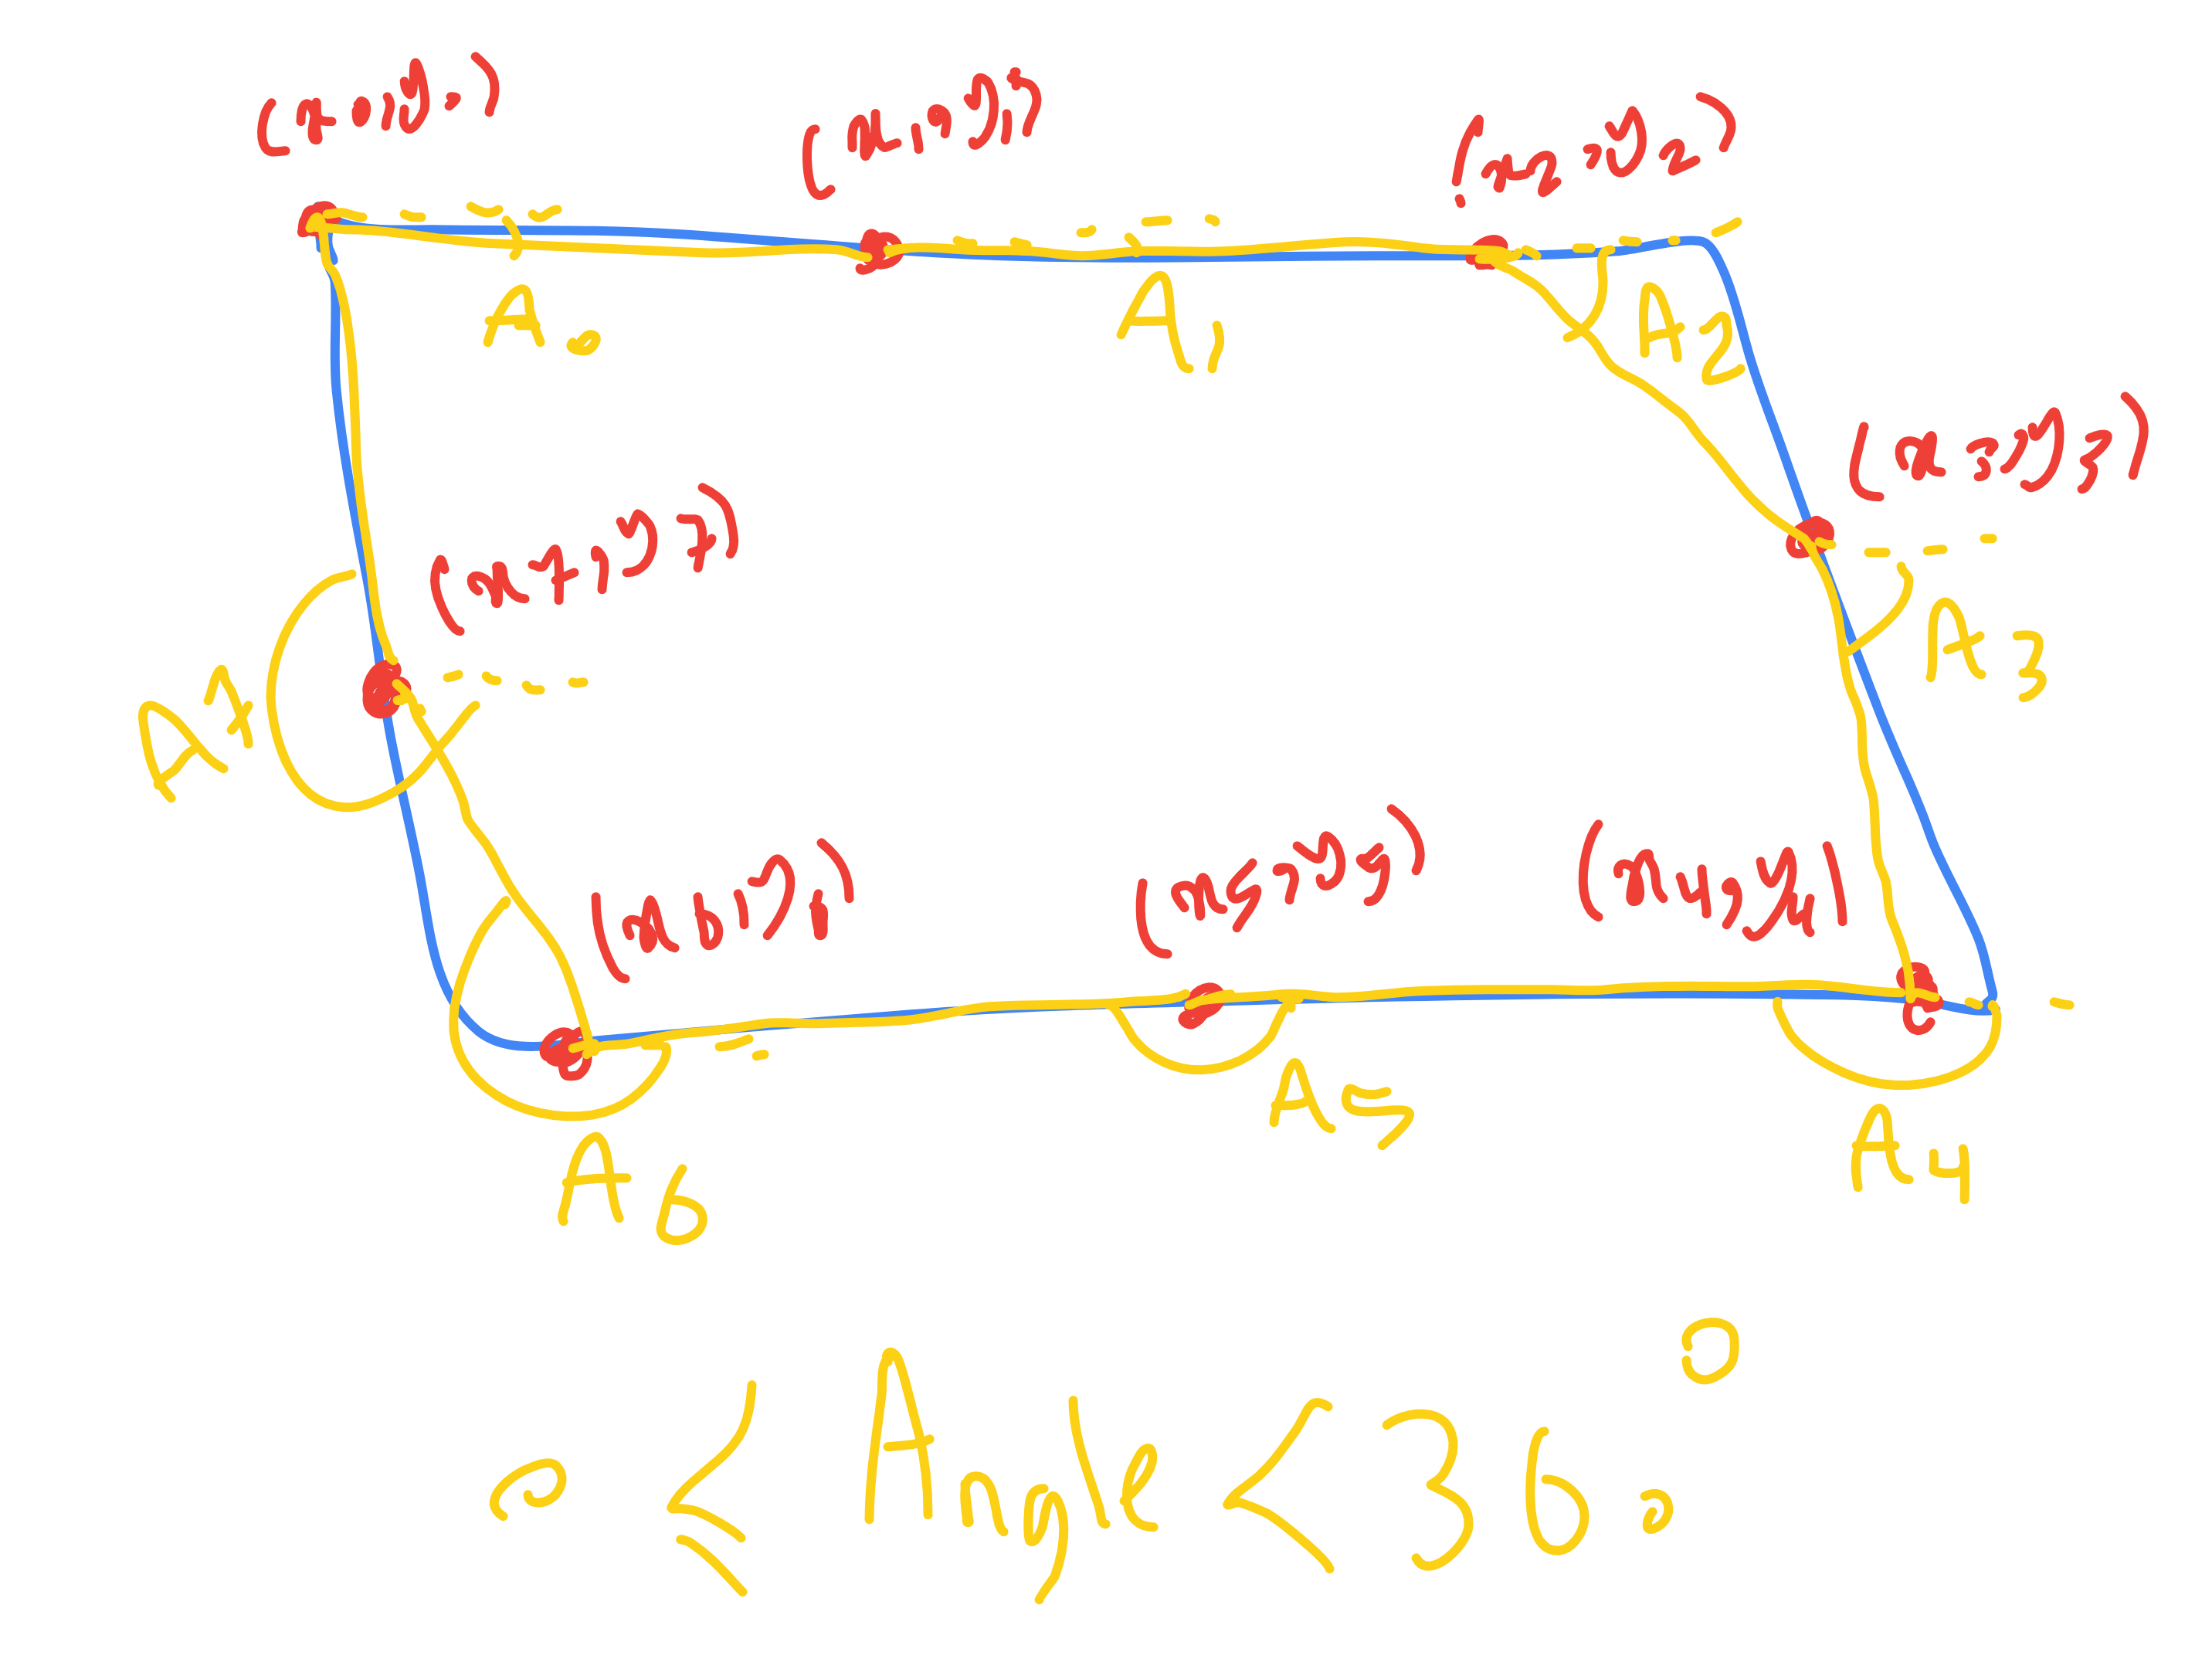 (x0,y0)
(x1,y1)
(x2,y2)
A0
A1
A2
(x3,y3)
(x7,y7)
A3
A7
(x6,y6)
(x5,y5)
(x4,y4)
A5
A4
A6
0 ≤ Angle < 360°